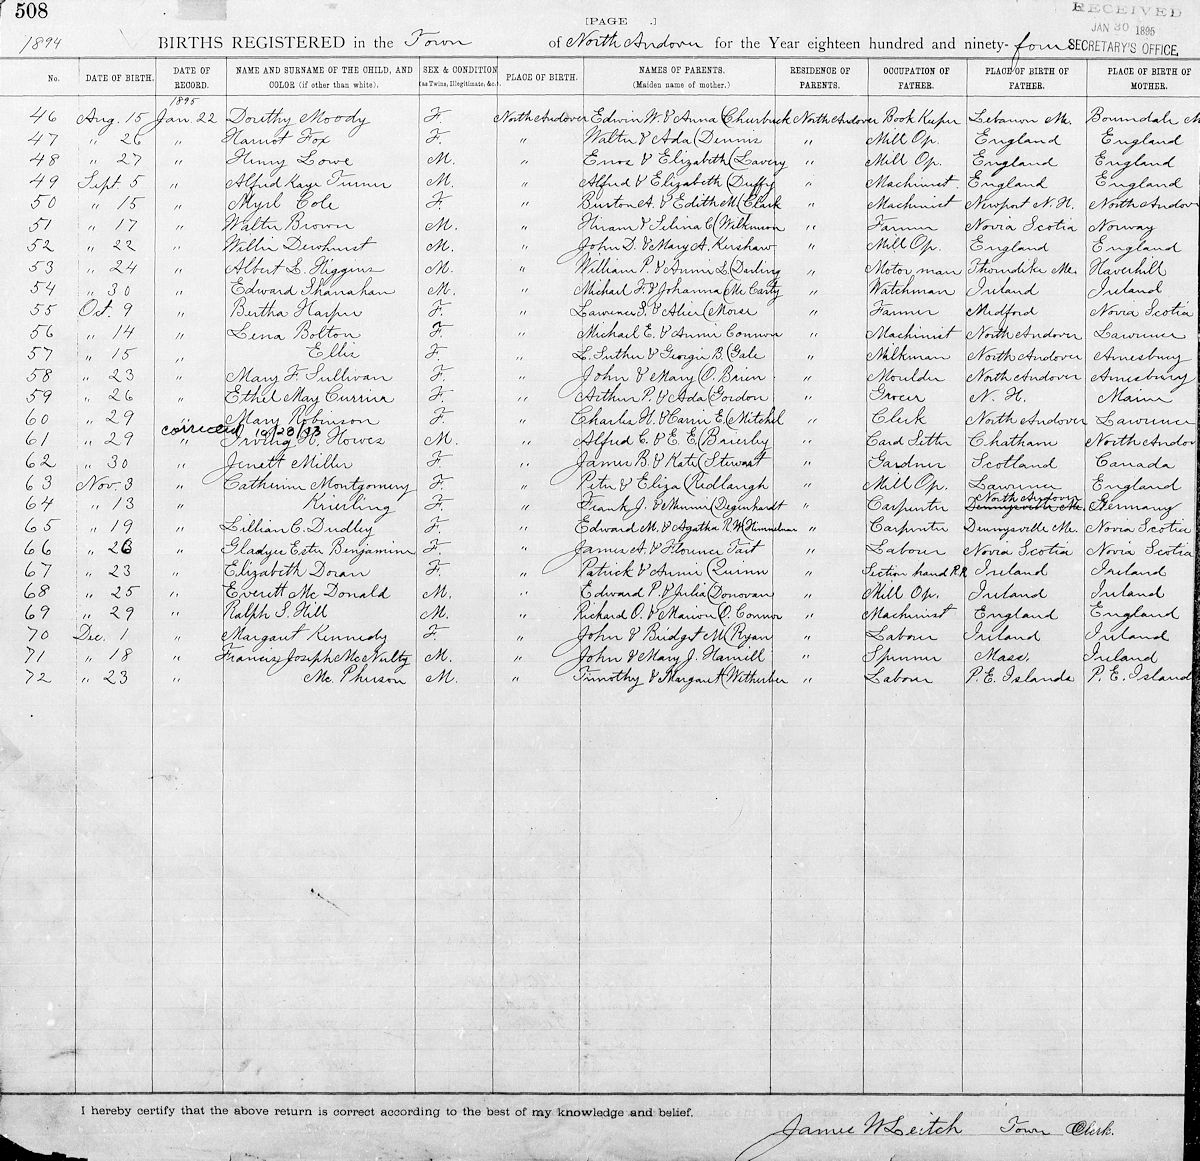 508
[PAGE .]
RECEIVED
JAN 30 1895
SECRETARY'S OFFICE.
1894 BIRTHS REGISTERED in the Town of North Andover for the Year eighteen hundred and ninety-four
No. DATE OF BIRTH. DATE OF RECORD. NAME AND SURNAME OF THE CHILD, AND COLOR (if other than white). SEX & CONDITION (as Twins, Illegitimate, &c.) PLACE OF BIRTH. NAMES OF PARENTS. (Maiden name of mother.) RESIDENCE OF PARENTS. OCCUPATION OF FATHER. PLACE OF BIRTH OF FATHER. PLACE OF BIRTH OF MOTHER.
1895
46 Aug. 15 Jan. 22 Dorothy Moody F. North Andover Edwin W. & Anna ( North Andover Book Keeper Lebanon Me.
47 " 26 " Harriot Fox F. " Walter & Ada (Dennis " Mill Op. England England
48 " 27 " Henry Lowe M. " Enos & Elizabeth (Lavery " Mill Op. England England
49 Sept. 5 " Alfred Kaye Turner M. " Alfred & Elizabeth (Duffy " Machinist. England England
50 " 15 " Myrl Cole F. " Burton A. & Edith M (Clark " Machinist Newport N.H. North Andover
51 " 17 " Walter Brown M. " Hiram & Selina C (Wilkinson " Farmer Novia Scotia Norway
52 " 22 " Willie Dewhirst M. " John D. & Mary A. Kershaw " Mill Op England England
53 " 24 " Albert L. Higgins M. " William P. & Annie L (Darling " Motor man Thorndike Me. Haverhill
54 " 30 " Edward Shanahan M. " Michael F. & Johanna (Mc Carty " Watchman Ireland Ireland
55 Oct. 9 " Bertha Harper F. " Lawrence S. & Alice (Morse " Farmer Medford Novia Scotia
56 " 14 " Lena Bolton F. " Michael E. & Annie Connor " Machinist North Andover Lawrence
57 " 15 " Ellis F. " L. Luther & Georgie B. (Gale " Milkman North Andover Amesbury
58 " 23 " Mary F. Sullivan F. " John & Mary (O. Brien " Moulder North Andover Amesbury
59 " 26 " Ethel May Currier F. " Arthur P. & Ada (Gordon " Grocer N. H. Maine
60 " 29 " Mary Robinson F. " Charles H. & Carrie E. (Mitchel " Clerk North Andover Lawrence
corrected 10/28/33
61 " 29 " Irving H. Howes M. " Alfred C. & E. E. (Brierly " Card Setter Chatham North Andover
62 " 30 " Jenett Miller F. " James B. & Kate (Stewart " Gardner Scotland Canada
63 Nov. 3 " Catherine Montgomery F. " Peter & Eliza (Redlaugh " Mill Op. Lawrence England
64 " 13 " Knierling F. " Frank J. & Minnie (Degenhardt " Carpenter North Andover Dennysville Me. Germany
65 " 19 " Lillian C. Dudley F. " Edward M. & Agatha R. W (Himmelman " Carpenter Dennysville Me. Novia Scotia
66 " 26 " Gladyce Ester Benjamine F. " James A. & Florence Tait " Laborer Novia Scotia Novia Scotia
67 " 23 " Elizabeth Doran F. " Patrick & Annie (Quinn " Section hand R.R. Ireland Ireland
68 " 25 " Everett Mc Donald M. " Edward P. & Julia (Donovan " Mill Op. Ireland Ireland
69 " 29 " Ralph S. Hill M. " Richard O. & Marion (O. Connor " Machinist England England
70 Dec. 1 " Margaret Kennedy F. " John & Bridget M (Ryan " Laborer Ireland Ireland
71 " 18 " Francis Joseph Mc Nulty M. " John & Mary J. Hamill " Spinner Mass. Ireland
72 " 23 " Mc Pherson M. " Timothy & Margaret (Witherbee " Laborer P. E. Islands P. E. Island
I hereby certify that the above return is correct according to the best of my knowledge and belief.
James W Leitch Town Clerk.